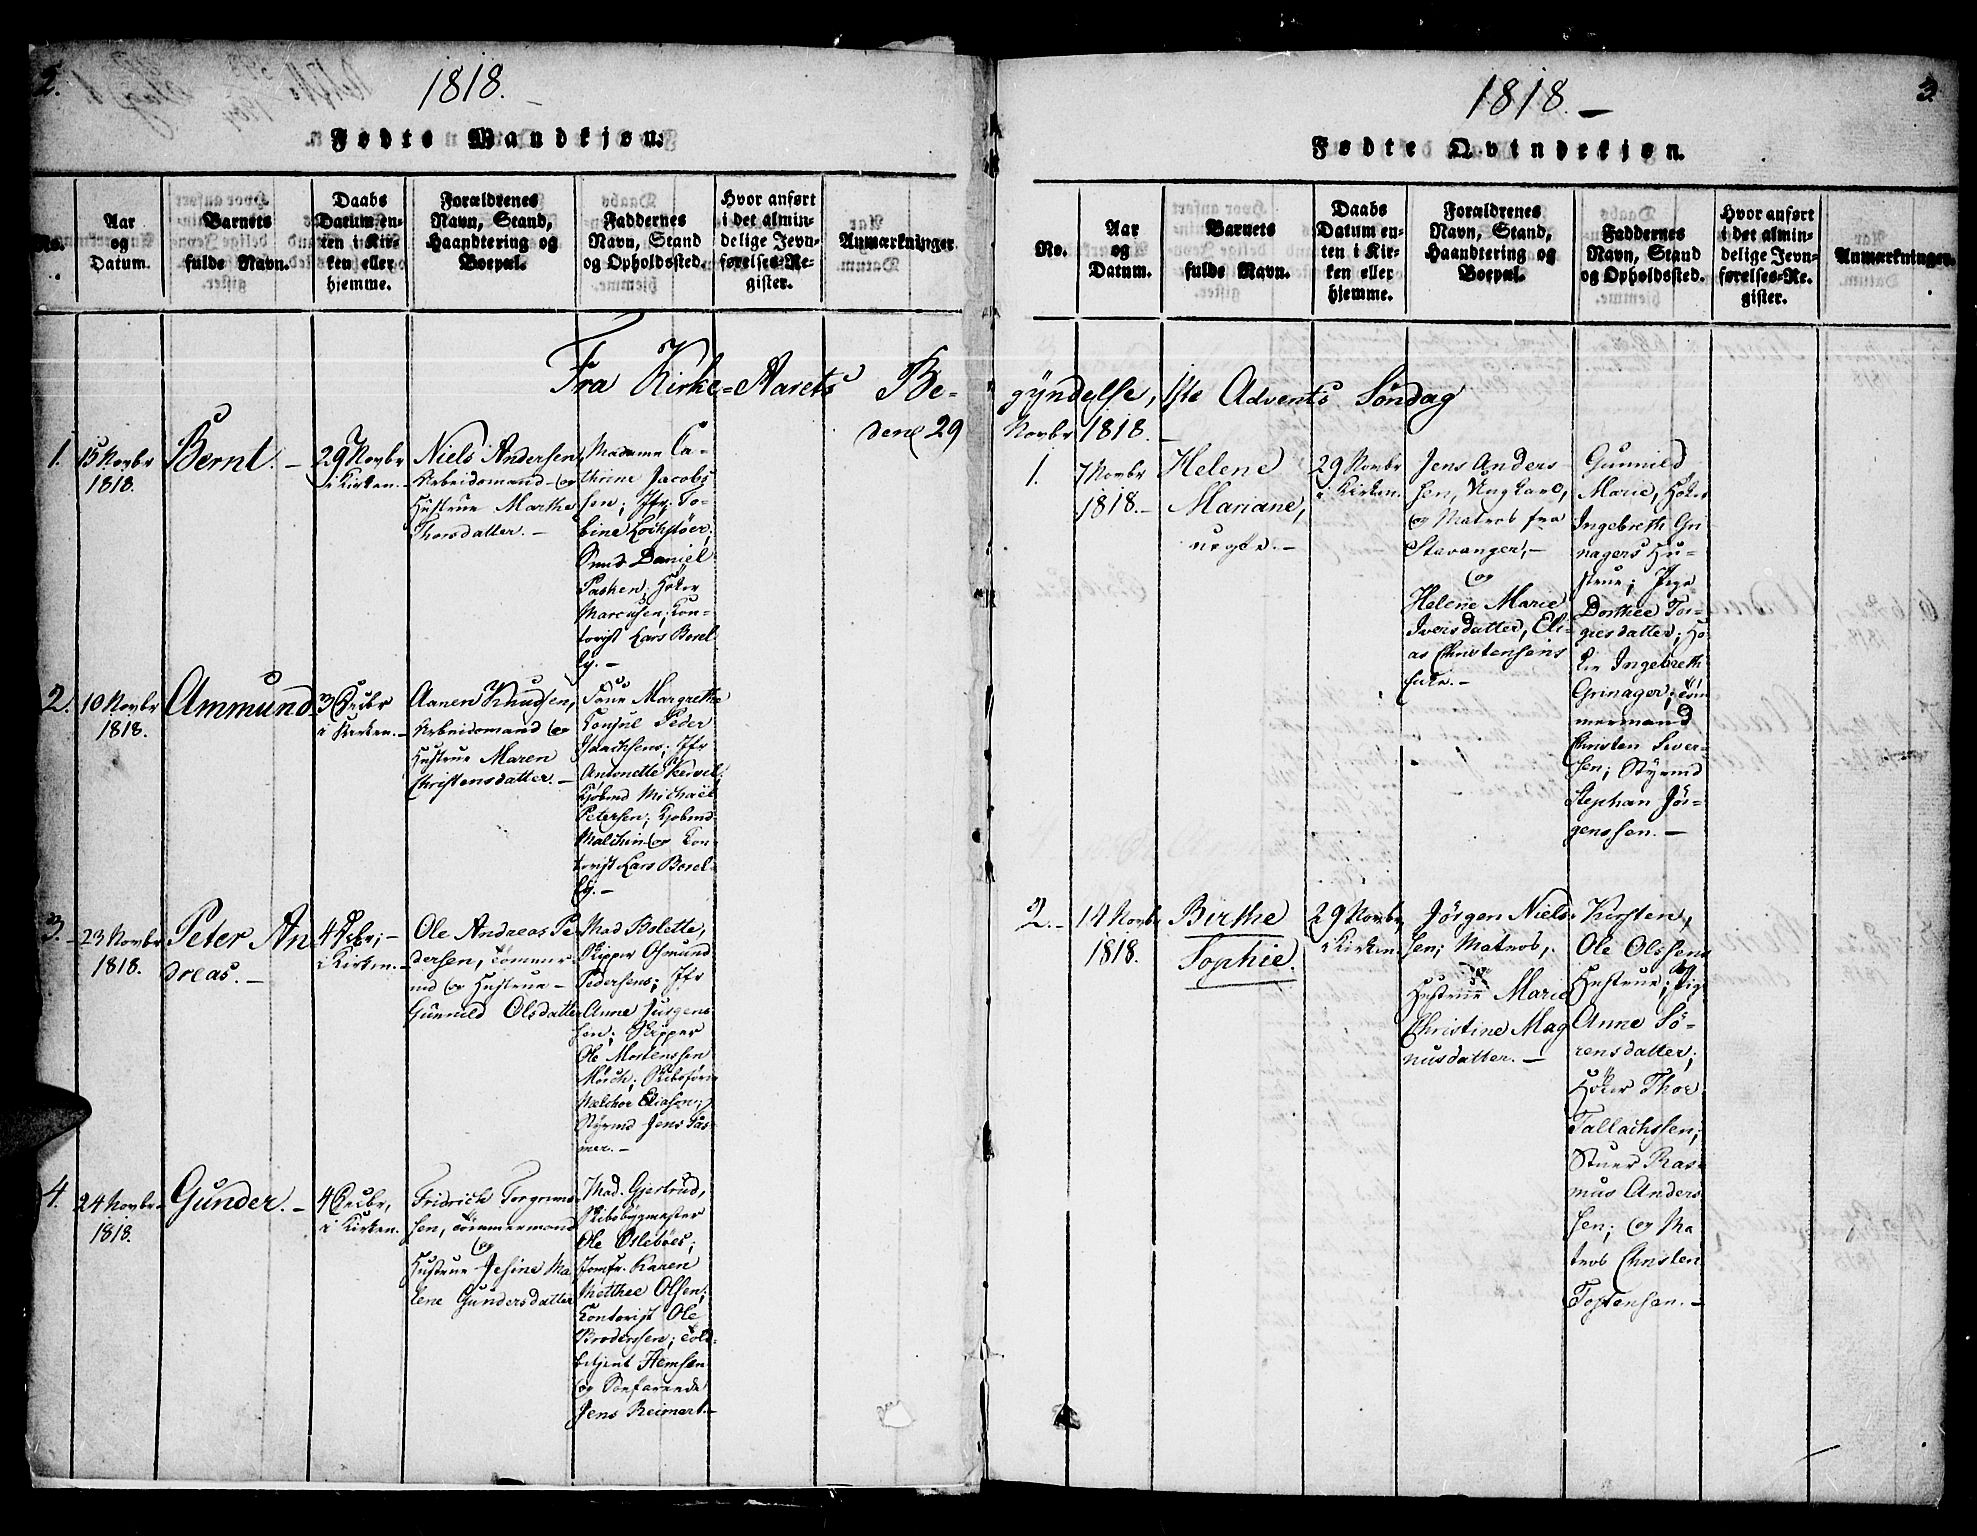 2.
1818.
Fødte Mandkjøn.
No.
Aar
og
Datum.
Barnets
fulde Navn.
Daabs
Datum en-
ten i Kir-
ken eller
hjemme.
Forældrenes
Navn, Stand,
Haandtering og
Boepæl.
Faddernes
Navn, Stand
og Opholdssted.
Hvor anført
i det almin-
delige Jevn-
førelses-Re-
gister.
Anmærkninger.
Fra Kirke-Aarets Be-
den 29
1.
15 Novbr
1818.
Bernt. –
29 Novbr
i Kirken. –
Niels Andersen
Arbeidsmand – og
Hustrue Marthe
Thorsdatter. –
Madame Ca-
thrine Jacobs
sen; Jfr. To-
bine Lochstöer;
Smd. Daniel
Pasken; Höker
Marcusen; Con-
torist Lars Borel-
ly. –
2.
10 Novbr
1818.
Ammund
3 Decbr
i Kirken. –
Aanen Knudsen,
Arbeidsmand og
Hustrue Maren
Christensdatter. –
Frue Margrethe
Consul Peder
Isachsens; Jfr
Antonette
Kjöbmd Michaël
Petersen; Kjöbmd
Malchin og Con-
torist Lars Borel-
ly. –
3.
23 Novbr
1818.
Peter An
dreas. –
4 Dcbr; –
i Kirken. –
Ole Andreas Pe
dersen, Tömmer
md og Hustrue –
Gunnild Olsdatter
Mad Bolette,
Skipper Osmund
Pedersens; Jfr
Anne Jurgens
sen; Skipper
Ole Mortenssen
Mörch;
Melchor Eliasen;
Styrmd Jens Pas-
mer. –
4.
24 Novbr
1818.
Gunder. –
4 Decbr,
i Kirken.
Fridrich Torgrims
sen, Tömmermand
og
Hustrue Jesine Ma
lene Gundersdatter
Mad. Gjertrud,
Skibsbygmester
Ole Osleböes;
Jomfr. Karen
Metthee Olsen;
Contorist Ole
Brodersen; Told-
betjent Hemsen
og Söefarende
Jens Reimert. –
3.
1818. –
Fødte Qvindekjøn.
No.
Aar
og
Datum.
Barnets
fulde Navn.
Daabs
Datum en-
ten i Kir-
ken eller
hjemme.
Forældrenes
Navn, Stand,
Haandtering og
Boepæl.
Faddernes
Navn, Stand
og Opholdssted.
Hvor anført
i det almin-
delige Jevn-
førelses-Re-
gister.
Anmærkninger.
gyndelse, 1ste Advents Söndag
Novbr 1818. –
1.
7 Novbr
1818. –
Helene
Mariane,
uegte. –
29 Novbr
i Kirken.
Jens Anders
sen, Ungkarl,
og Matros fra
Stavanger, –
og
Helene Marie
Iversdatter, Eli-
as Christensens
Enke. –
Gunnild
Marie, Höker
Ingebreth Gri
nagers Hu-
strue; Pige
Dorthee Tor-
giesdatter; Hö-
ker Ingebreth
Grinager; Töm
mermand
Christen Siver-
sen; Styrmd
Stephan Jör-
genssen. –
2. –
14 Novbr
1818.
Birthe
Sophie.
29 Novbr,
i Kirken.
Jörgen Niels-
sen; Matros,
og
Hustrue Marie
Christine Mag
nusdatter. –
Kirsten,
Ole Olssens
Hustrue; Pige
Anne Sö-
rensdatter;
Höker Thor
Tallachssen;
Stuer Ras-
mus Anders
sen; og Ma
tros Christen
Tostensen. –